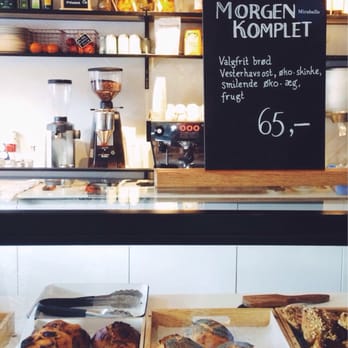 MORGEN
Mirabelle
KOMPLET
Valgfrit brød
Vesterhavsost, øko-skinke,
smilende øko-æg,
frugt
65,-